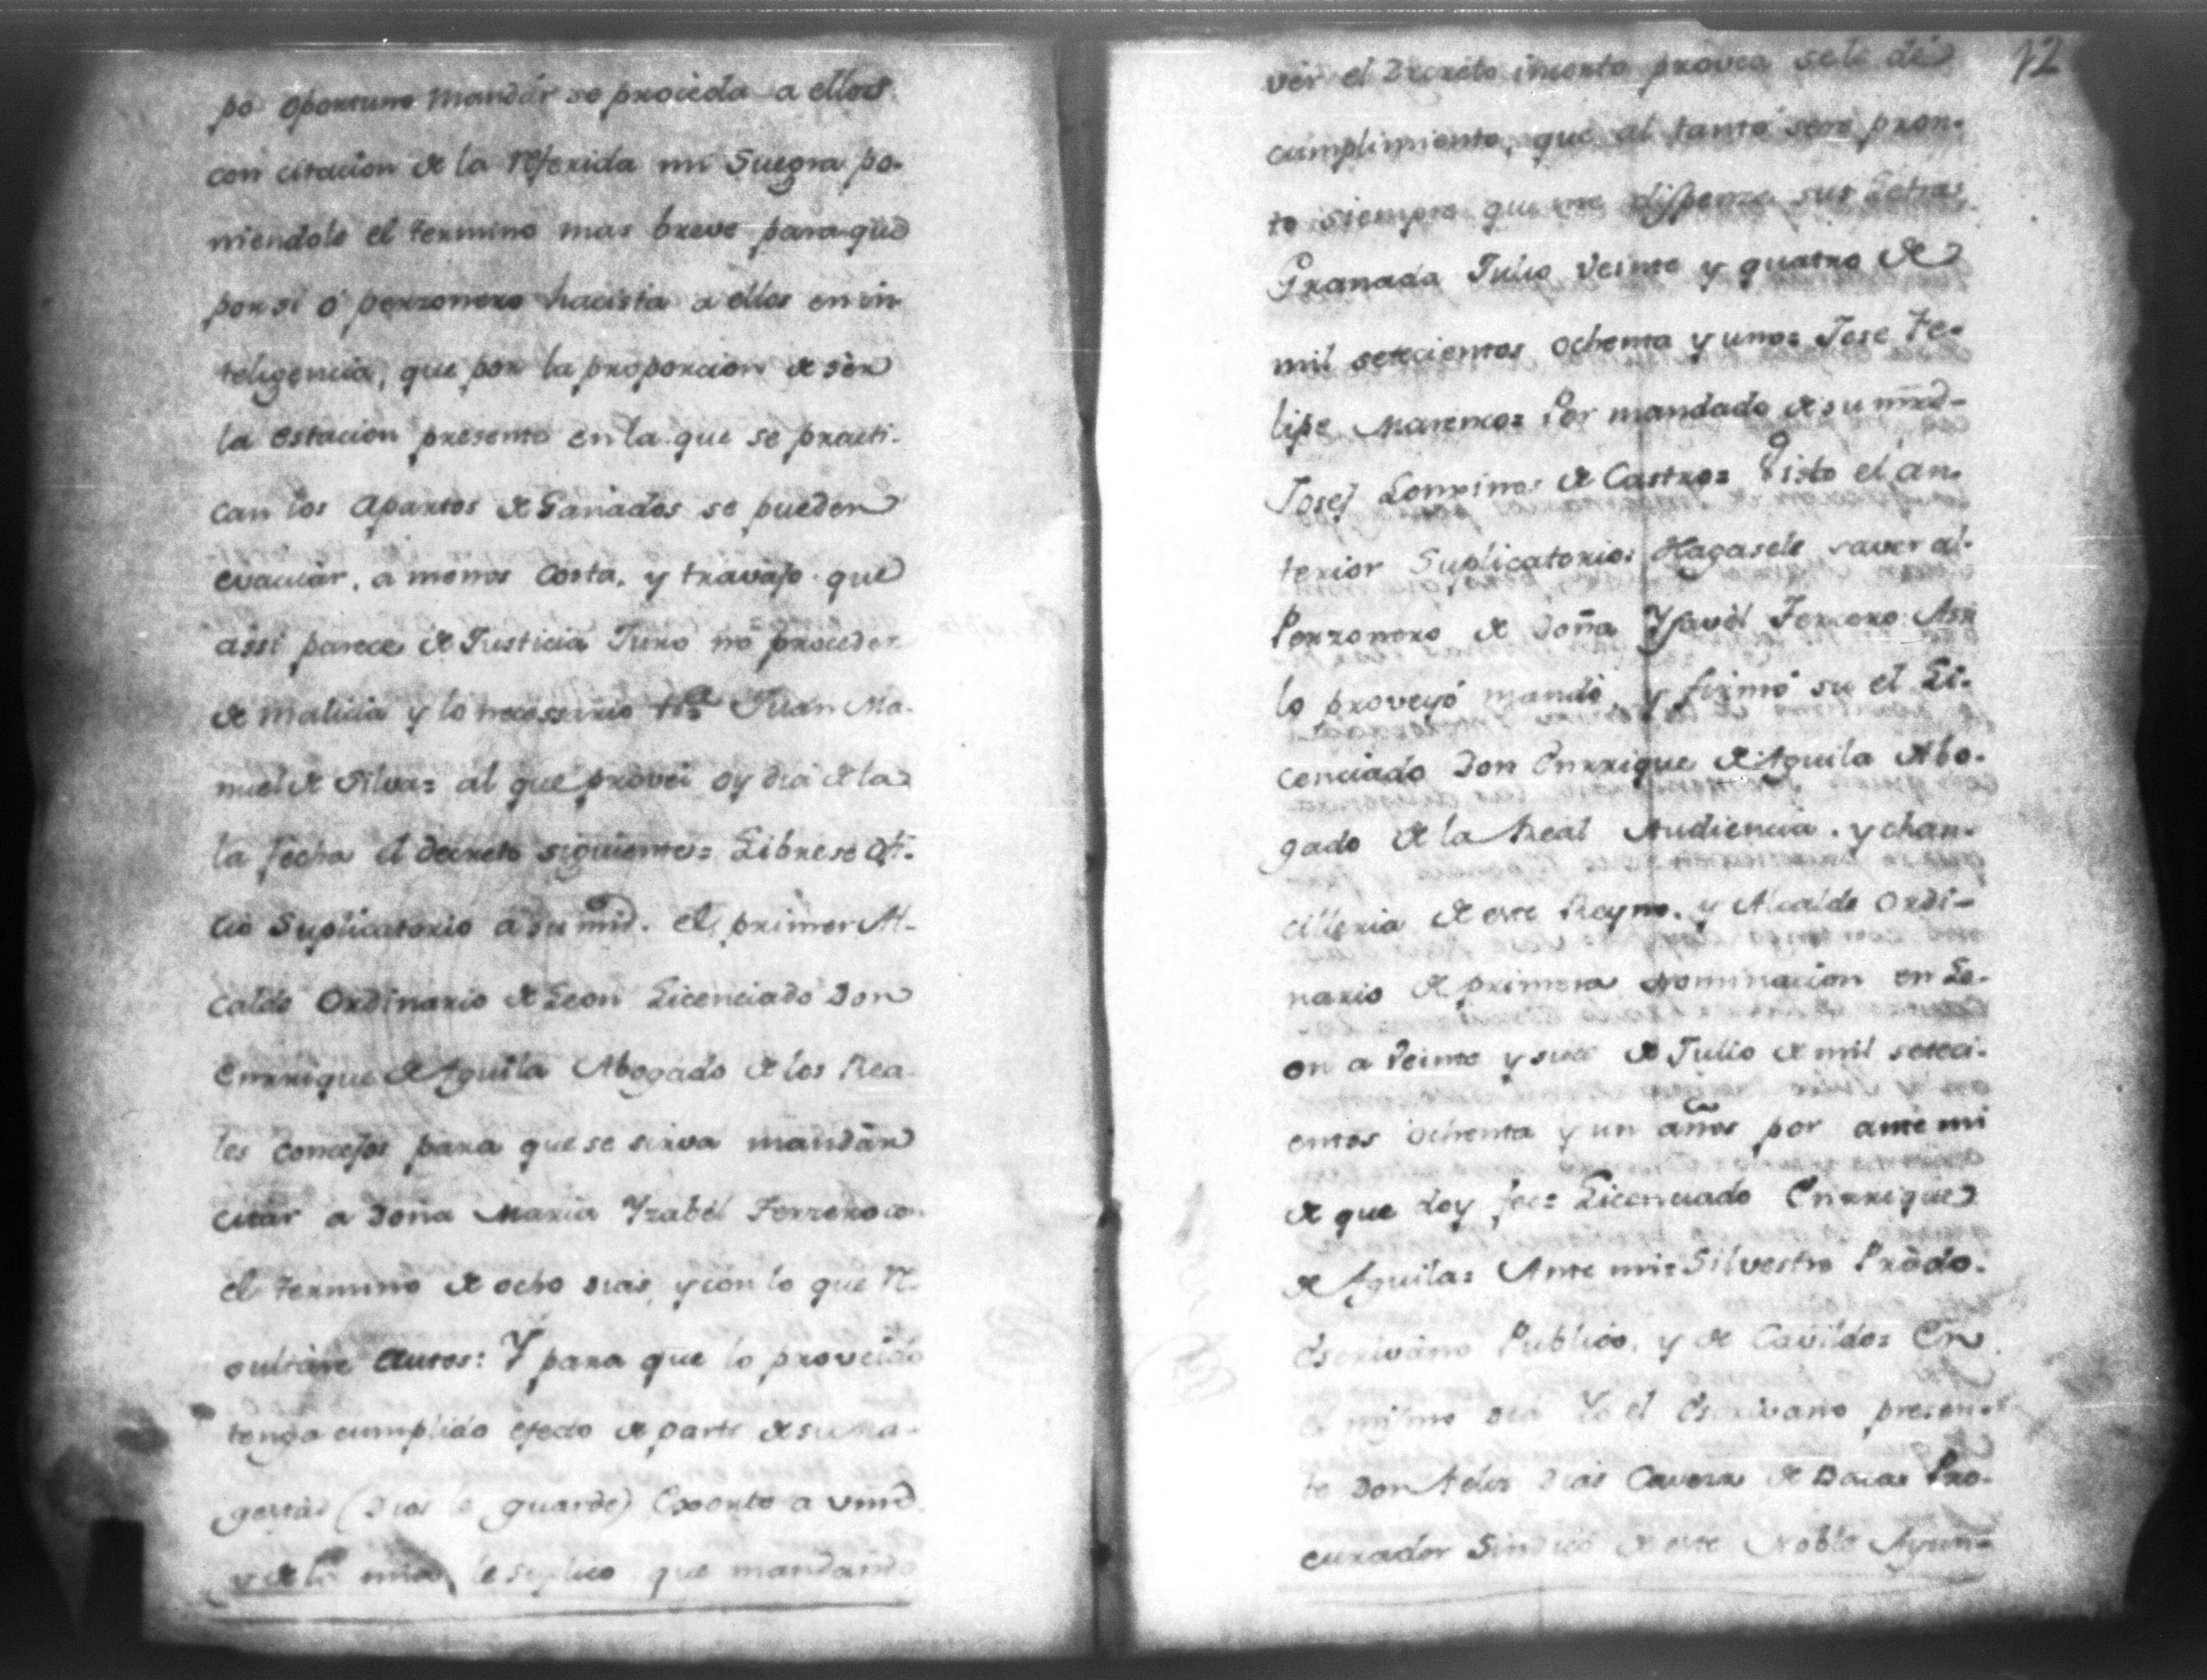 po oportuno mandár se proceda a ellos
con citacion de la referida mi Suegra po-
niendole el termino mas breve para que
por si ó perzonero hacista a ellos en in
teligencia, que por la proporcion de sér
la estacion presente en la que se practi-
can los apartos de Ganados se pueden
evacuár, a menos costa, y travajo que
assi parece de Justicia Juro no proceder
de malicia y lo necessario Juan Ma-
nuel de Silva= al que provei oy dia de la
la fecha el decreto siguiente= Librese ofi-
cio Suplicatorio a su mrd. el primer Al-
calde Ordinario de Leon Licenciado Don
Enrrique de Aguila Abogado de los Rea-
les Concejos para que se sirva mandár
citár a Doña Maria Yzabél Ferrero co-
el termino de ocho dias, y con lo que re-
sultáre Autos: Y para que lo proveido
tenga cumplido efecto de parte de su Ma-
gestád (Dios le guarde) Exorto a Vmrd.
y de la mia le suplico que mandando
12
vér el Decreto incerto provea se le dé
cumplimiento, que al tanto seré pron-
to siempre que me dispense sus Letras,
Granada Julio veinte y quatro de
mil setecientos ochenta y uno= Jose Fe-
lipe Marenco= Por mandado de su mrd-
Josef Lonxinos de Castro= Visto el an-
terior Suplicatorio: Hagasele saver al
Perzonero de Doña Ysavél Ferrero Assi
lo proveyó mandó, y firmó su el Li-
cenciado Don Enrrique de Aguila Abo-
gado de la Real Audiencia, y chan-
cilleria de este Reyno, y Alcalde Ordi-
nario de primera nominacion en Le-
on a veinte y siete de Julio de mil seteci-
entos ochenta y un años por ante mi
de que doy fee= Licenciado Enrrique
de Aguila= Ante mi= Silvestre Prádo.
Escriváno Publico, y de Cavildo= En
el mismo dia Yo el Escrivano presen-
te Don dias Cavera de Baca Pro-
curador Sindico de este Noble Ayun-